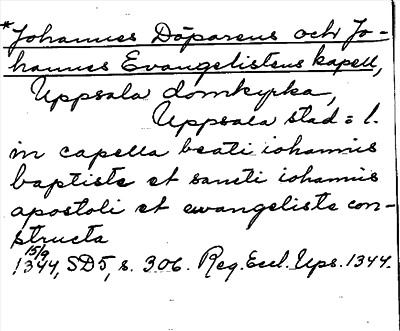 *Johannes Döparens och Jo-
hannes Evangelistens kapell,
Uppsala domkyrka,
Uppsala stad = l.
in capella beati iohannis
baptiste et sancti iohannis
apostoli et ewangeliste con-
structa
15/9
1344, SD5, s. 306. Reg. Eccl. Ups. 1344.